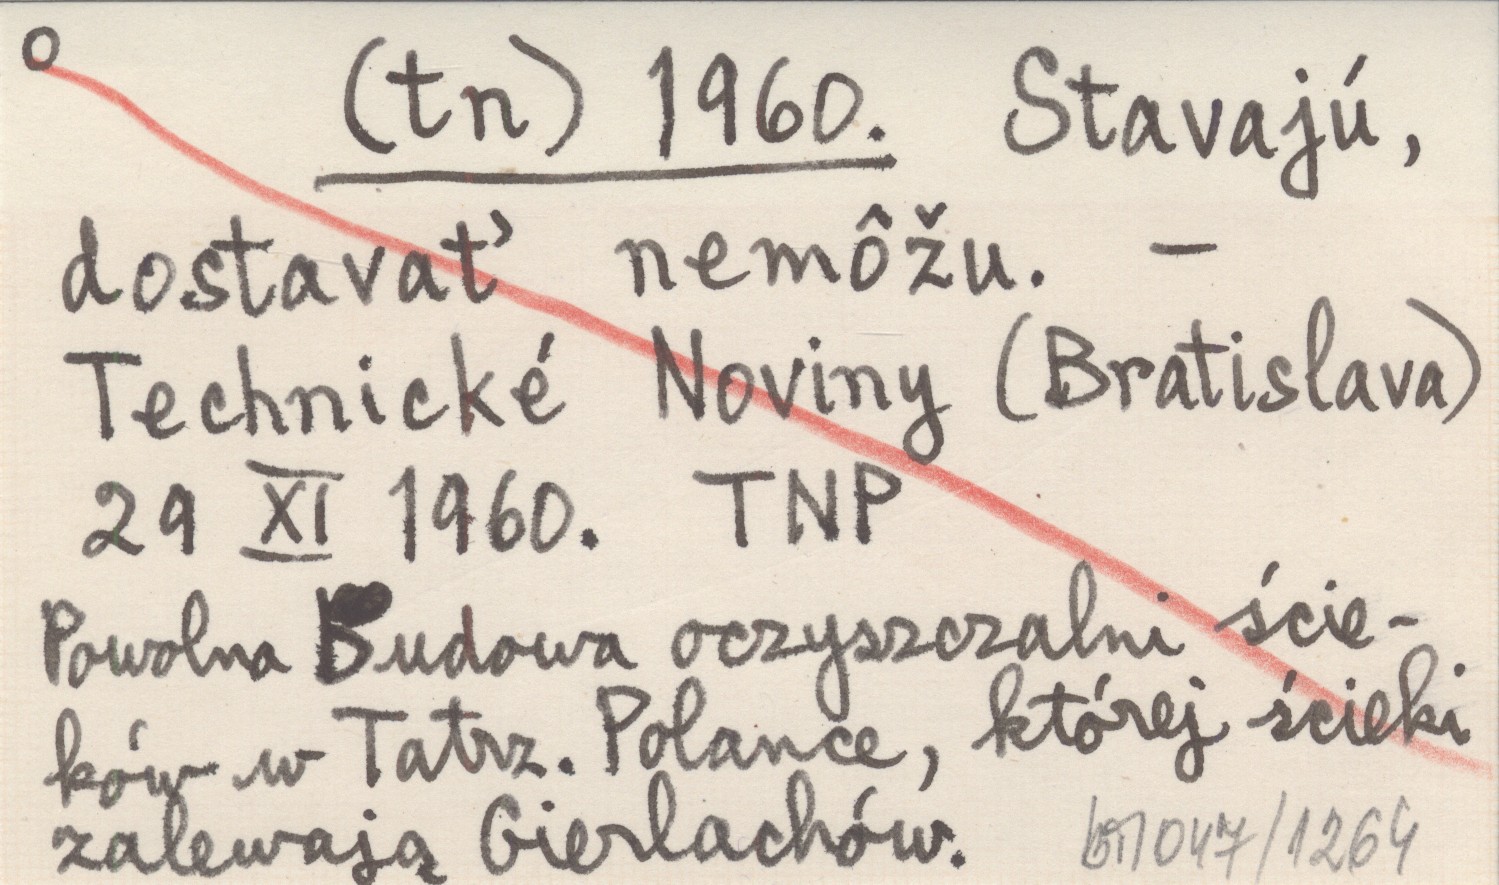 (tn) 1960. Stavajú,
dostavať nemôžu. –
Technické Noviny (Bratislava)
29 XI 1960. TNP
Powolna Budowa oczyszczalni ście-
ków w Tatrz. Polance, której ścieki
zalewają Gierlachów.
047/1264